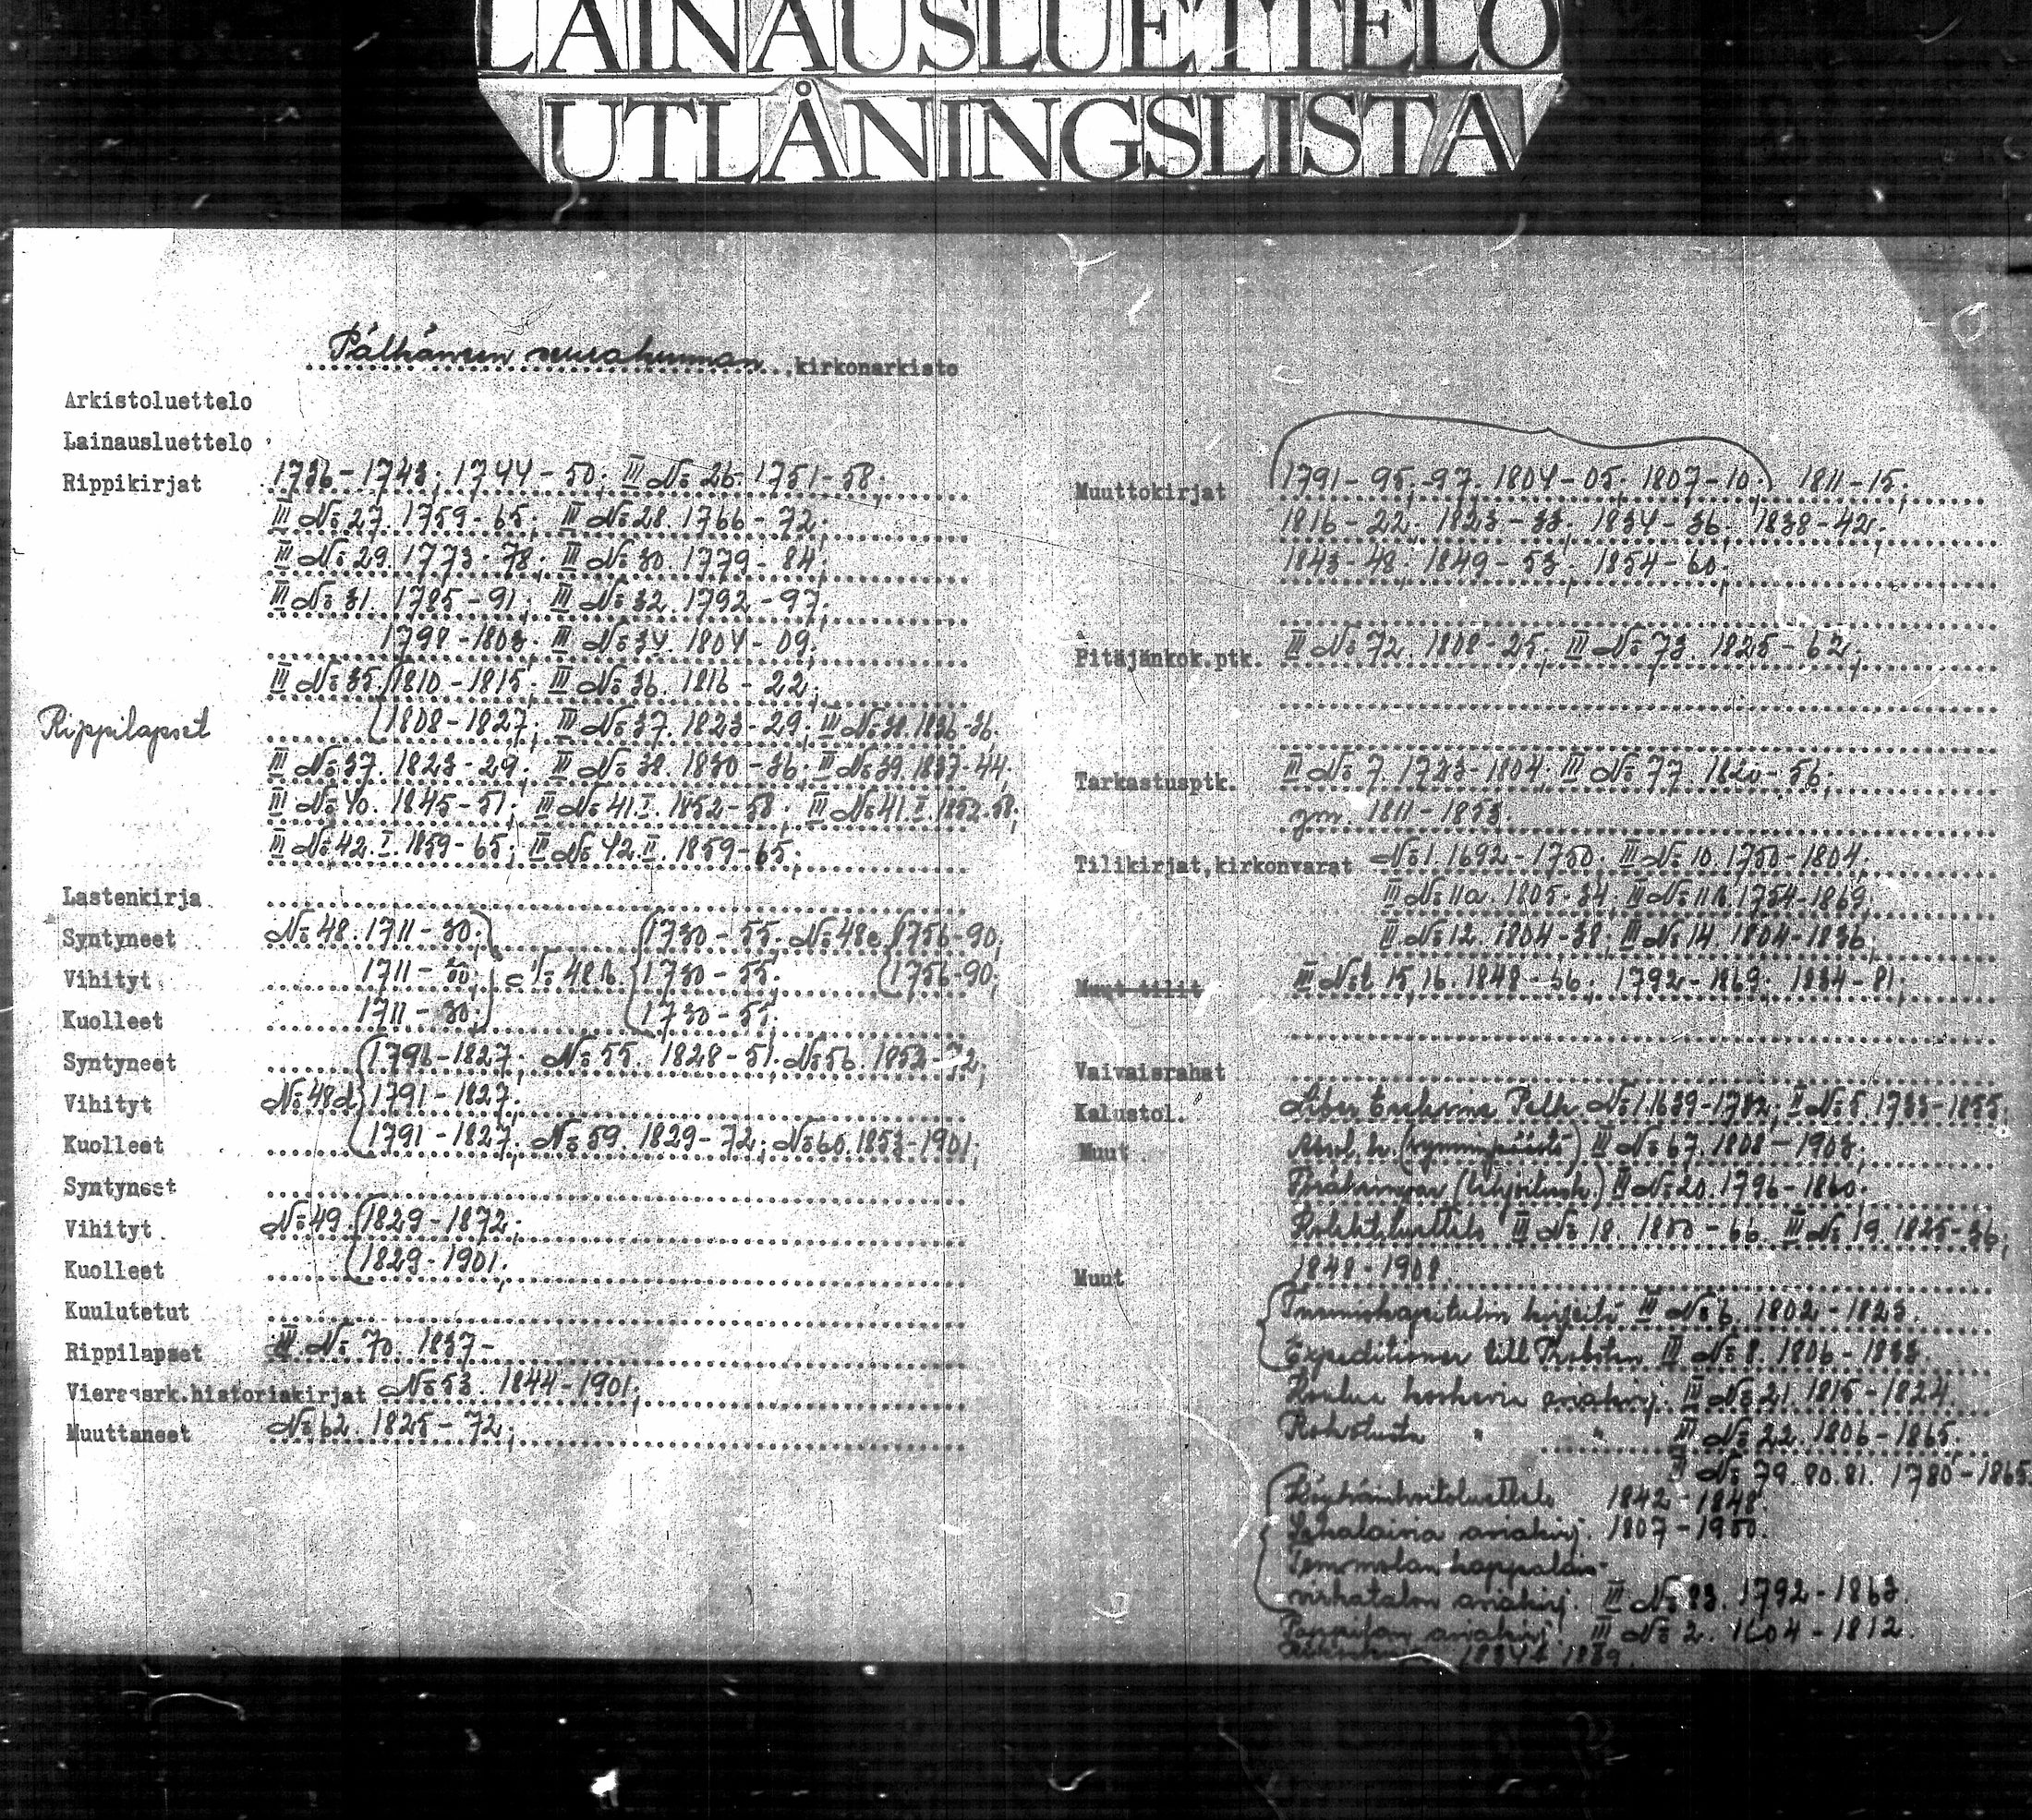 LAINAUSLUETTELO
UTLÅNINGSLISTA
Pälkäneen seurakunnan kirkonarkisto
Arkistoluettelo
Lainausluettelo
Rippikirjat 1736-1743; 1744-50; III No 26. 1751-58;
III No 27. 1759-65; III No 28. 1766-72;
III No 29. 1773-78; III No 30. 1779-84;
III No 31. 1785-91; III No 32. 1792-97;
1798-1803; III No 34. 1804-09;
III No 35. 1810-1815; III No 36. 1816-22;
Rippilapset 1808-1827; III No 37. 1823-29; III No 38. 1836-36.
III No 37. 1823-29; III No 38. 1830-36; III No 39. 1837-44;
III No 40. 1845-51; III No 41.I. 1852-58; III No 41.I. 1852-58;
III No 42.I. 1859-65; III No 42.II. 1859-65;
Lastenkirja
Syntyneet No 48. 1711-30; 1730-55. No 48c. 1756-90;
Vihityt 1711-30; No 48b. 1730-55. 1756-90;
Kuolleet 1711-30; 1730-55;
Syntyneet 1796-1827; No 55. 1828-51. No 56. 1852-72;
Vihityt No 48d 1791-1827.
Kuolleet 1791-1827; No 59. 1829-72; No 60. 1853-1901;
Syntyneet
Vihityt No 49. 1829-1872;
Kuolleet 1829-1901;
Kuulutetut
Rippilapset III No 70. 1837-
Vierassrk.historiakirjat No 53. 1844-1901;
Muuttaneet No 62. 1825-72;
Muuttokirjat 1791-95; -97. 1804-05; 1807-10; 1811-15;
1816-22; 1823-33; 1834-36; 1838-42;
1843-48; 1849-53; 1854-60;
Pitäjänkok.ptk. III No 72. 1808-25; III No 73. 1825-62;
Tarkastusptk. III No 7. 1723-1804; III No 77. 1820-56;
ym. 1811-1853.
Tilikirjat,kirkonvarat No 1. 1692-1750; III No 10. 1750-1804;
III No 11a. 1805-34; III No 11b. 1754-1869;
III No 12. 1804-38; III No 14. 1804-1836;
Muut tilit III No 15, 16. 1848-56; 1792-1869; 1834-81;
Vaivaisrahat
Kalustol. Liber Pelk. No 1. 1639-1782; II No 5. 1733-1855;
Muut Absol. k. (synninpäästö) III No 67. 1808-1903;
(lahjoitusk.) III No 20. 1796-1860;
Kolehtiluettelo III No 18. 1850-66. III No 19. 1825-36;
Muut 1848-1908.
Tuomiokapitulin kirjeitä III No 6. 1802-1823.
Expeditioner till Probsten III No 8. 1806-1833.
Koulua koskevia asiakirj. III No 21. 1815-1824.
Rokotusta " " III No 22. 1806-1865.
II No 79. 80. 81. 1780-1865.
Köyhäinhoitoluettelo 1842-1848.
Sekalaisia asiakirj. 1807-1950.
Temmolan kappalais-
virkatalon asiakirj. III No 83. 1792-1863.
Pappilan asiakirj. III No 2. 1604-1812.
1834 1839.